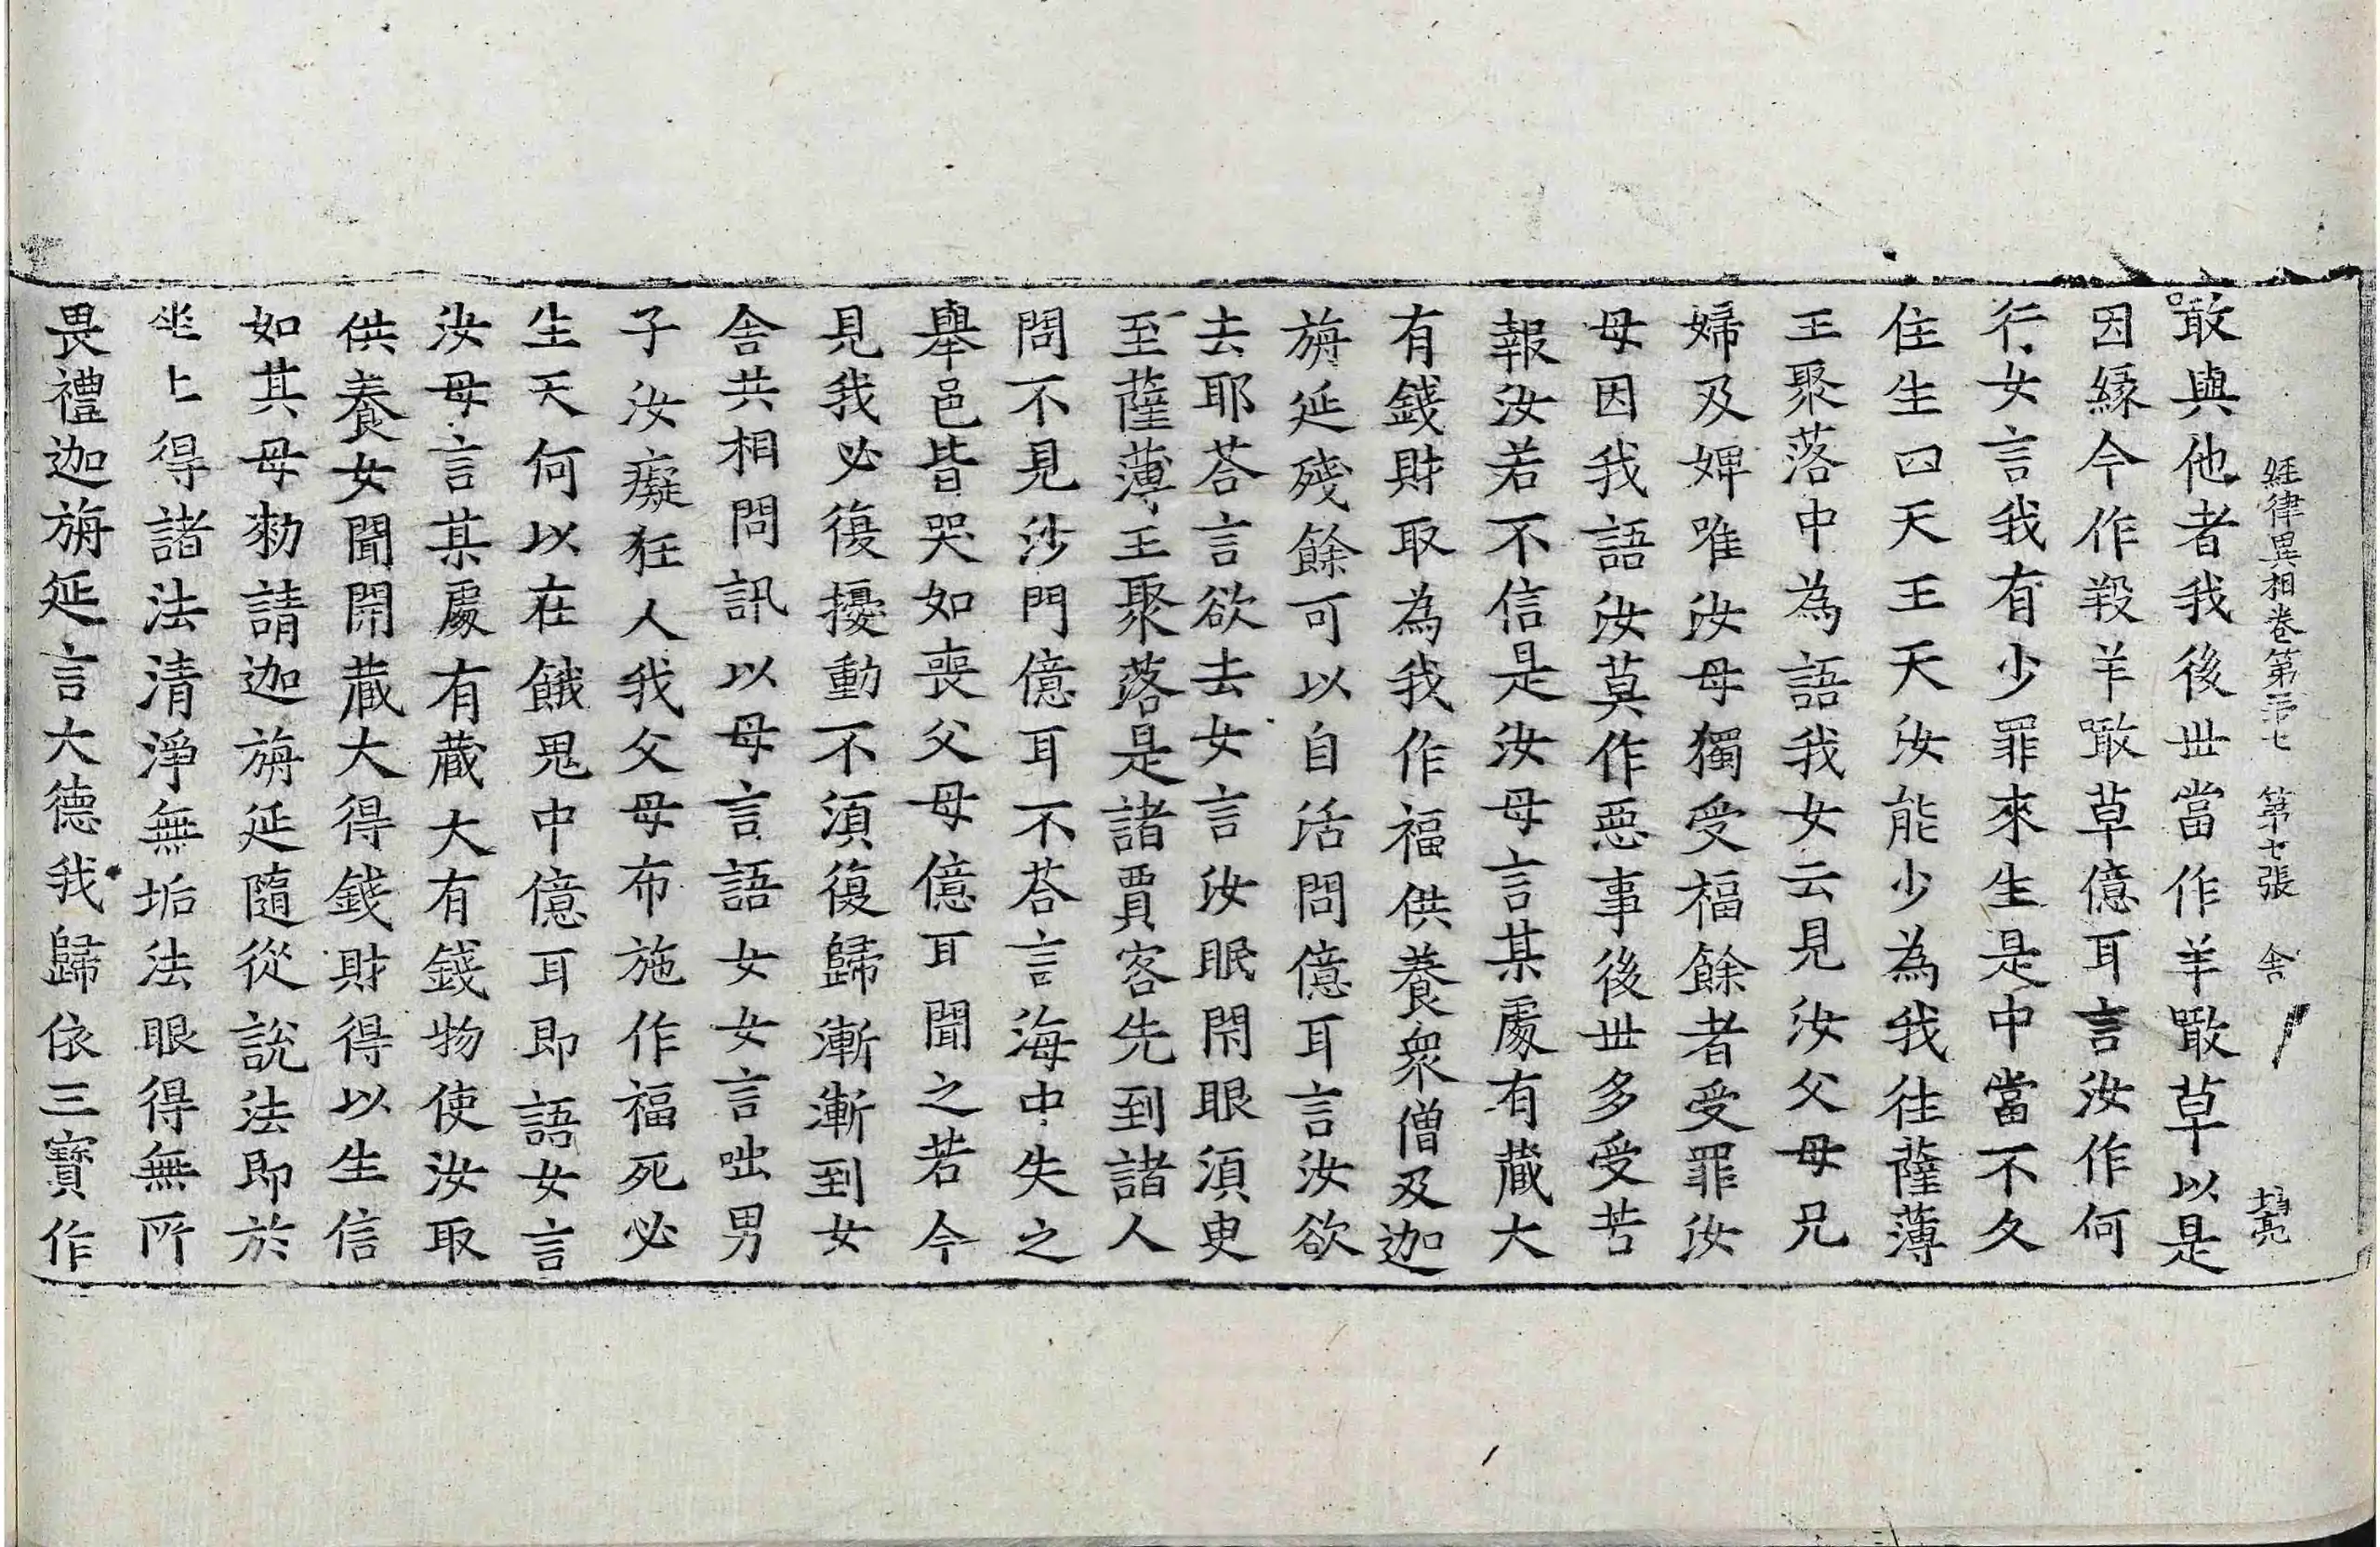 經律異相卷第三十七 第七張 舍
噉與他者我後世當作羊噉草以是
因緣今作羖羊噉草億耳言汝作何
行女言我有少罪來生是中當不久
住生四天王天汝能少為我往薩薄
王聚落中為語我女云見汝父母兄
婦及婢唯汝母獨受福餘者受罪汝
母因我語汝莫作惡事後世多受苦
報汝若不信是汝母言某處有藏大
有錢財取為我作福供養衆僧及迦
旃延殘餘可以自活問億耳言汝欲
去耶荅言欲去女言汝眠閇眼須臾
至薩薄王聚落是諸賈客先到諸人
問不見沙門億耳不荅言海中失之
舉邑皆哭如喪父母億耳聞之若今
見我必復擾動不須復歸漸漸到女
舍共相問訊以母言語女女言咄男
子汝癡狂人我父母布施作福死必
生天何以在餓鬼中億耳即語女言
汝母言某處有藏大有錢物使汝取
供養女聞開藏大得錢財得以生信
如其母勑請迦旃延隨從說法即於
坐上得諸法清淨無垢法眼得無所
畏禮迦旃延言大德我歸依三寶作